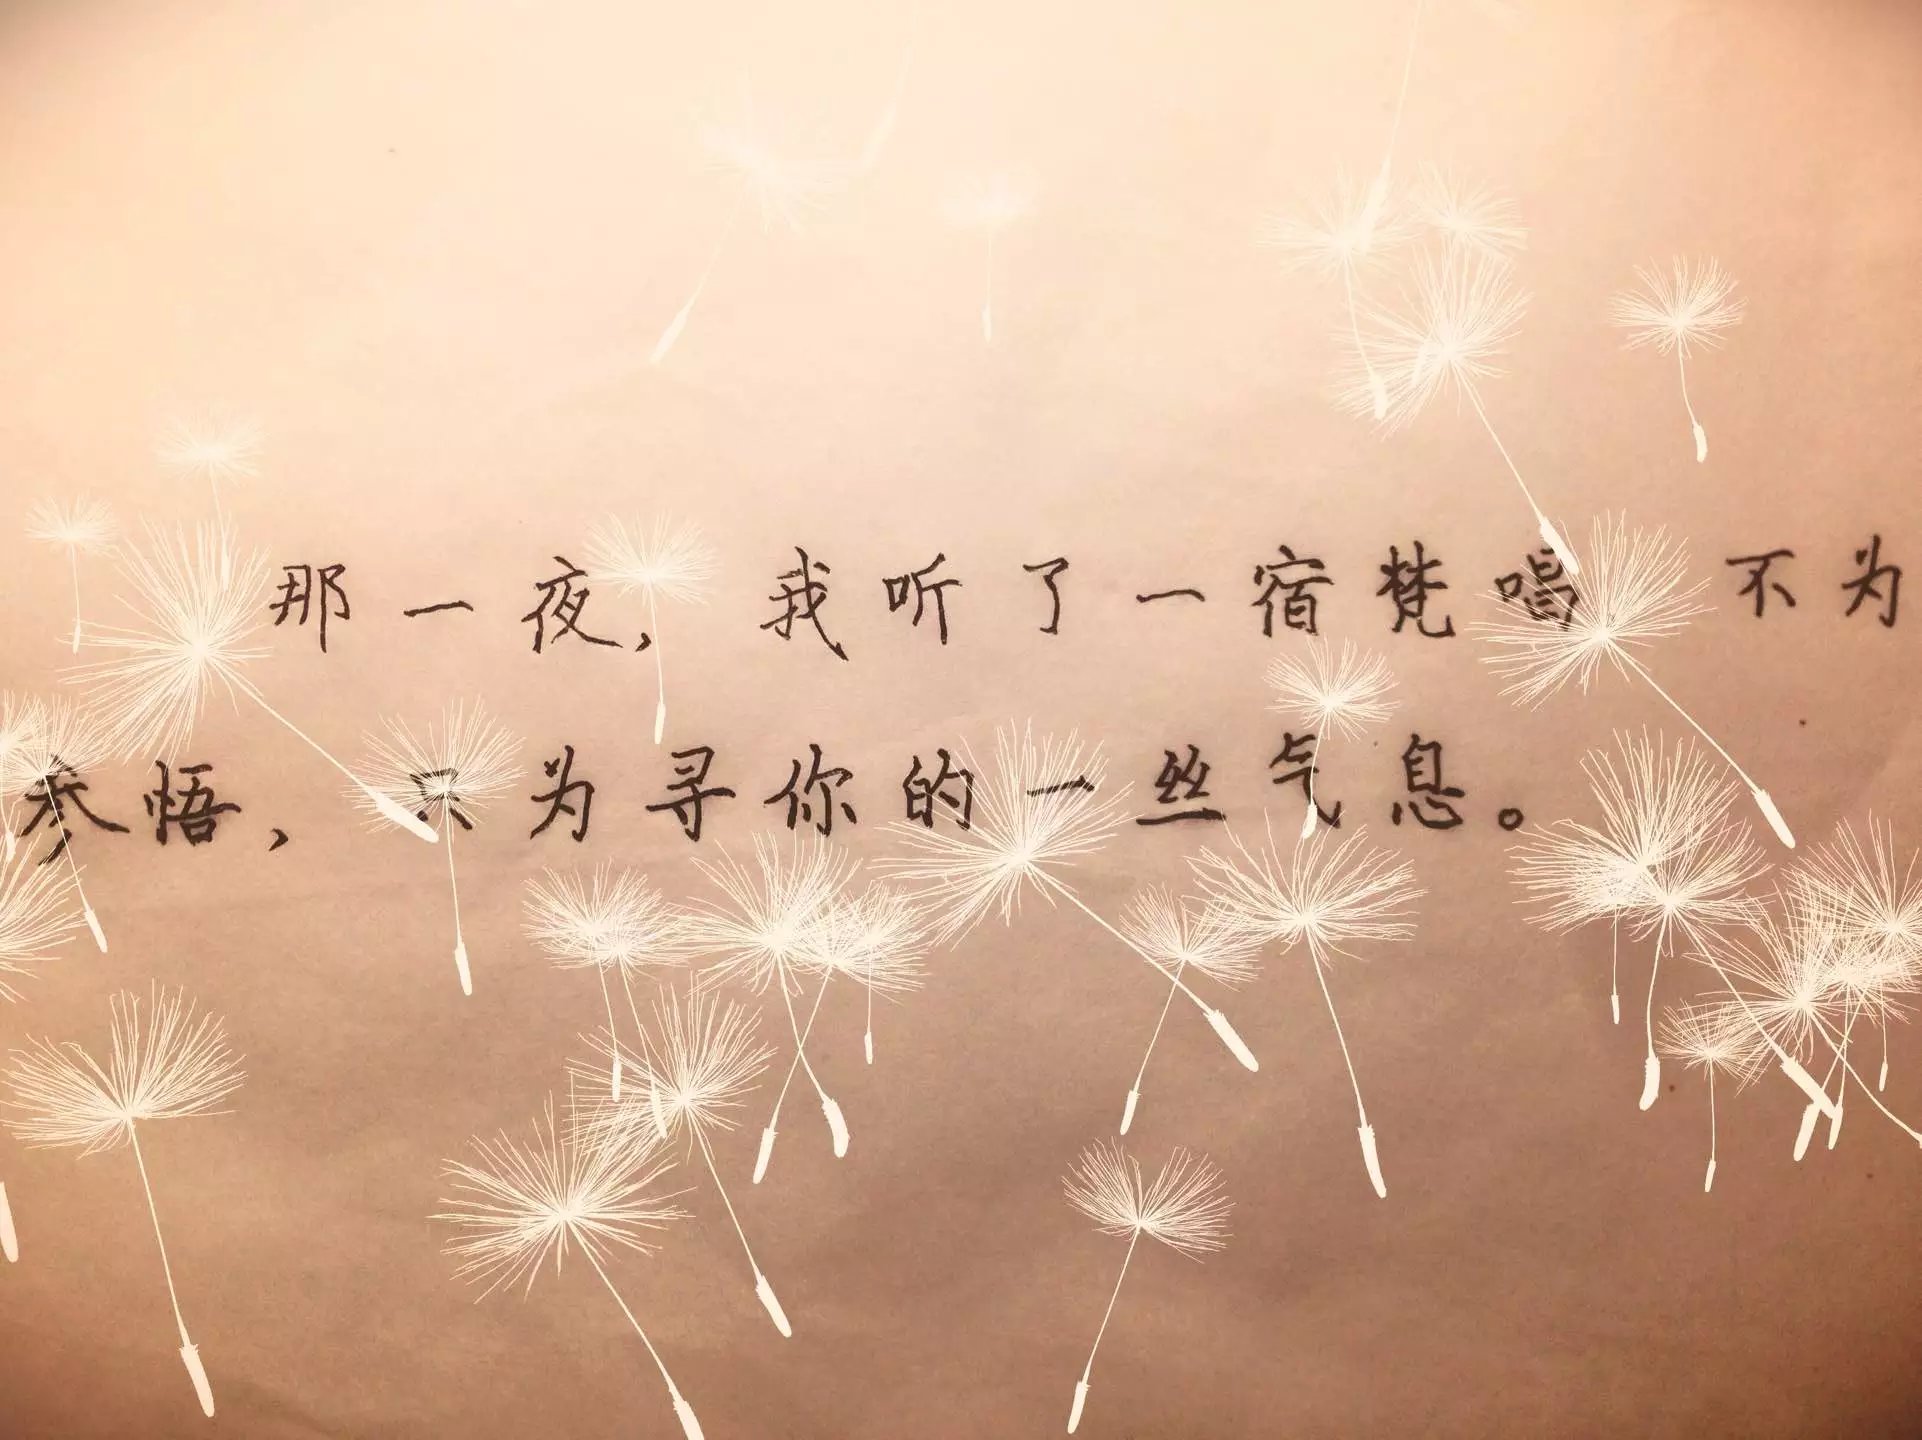 那一夜，我听了一宿梵唱 不为
参悟，只为寻你的一丝气息。